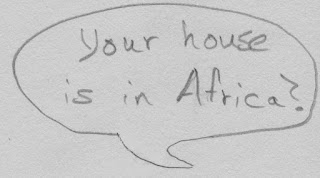 Your house
is in Africa?